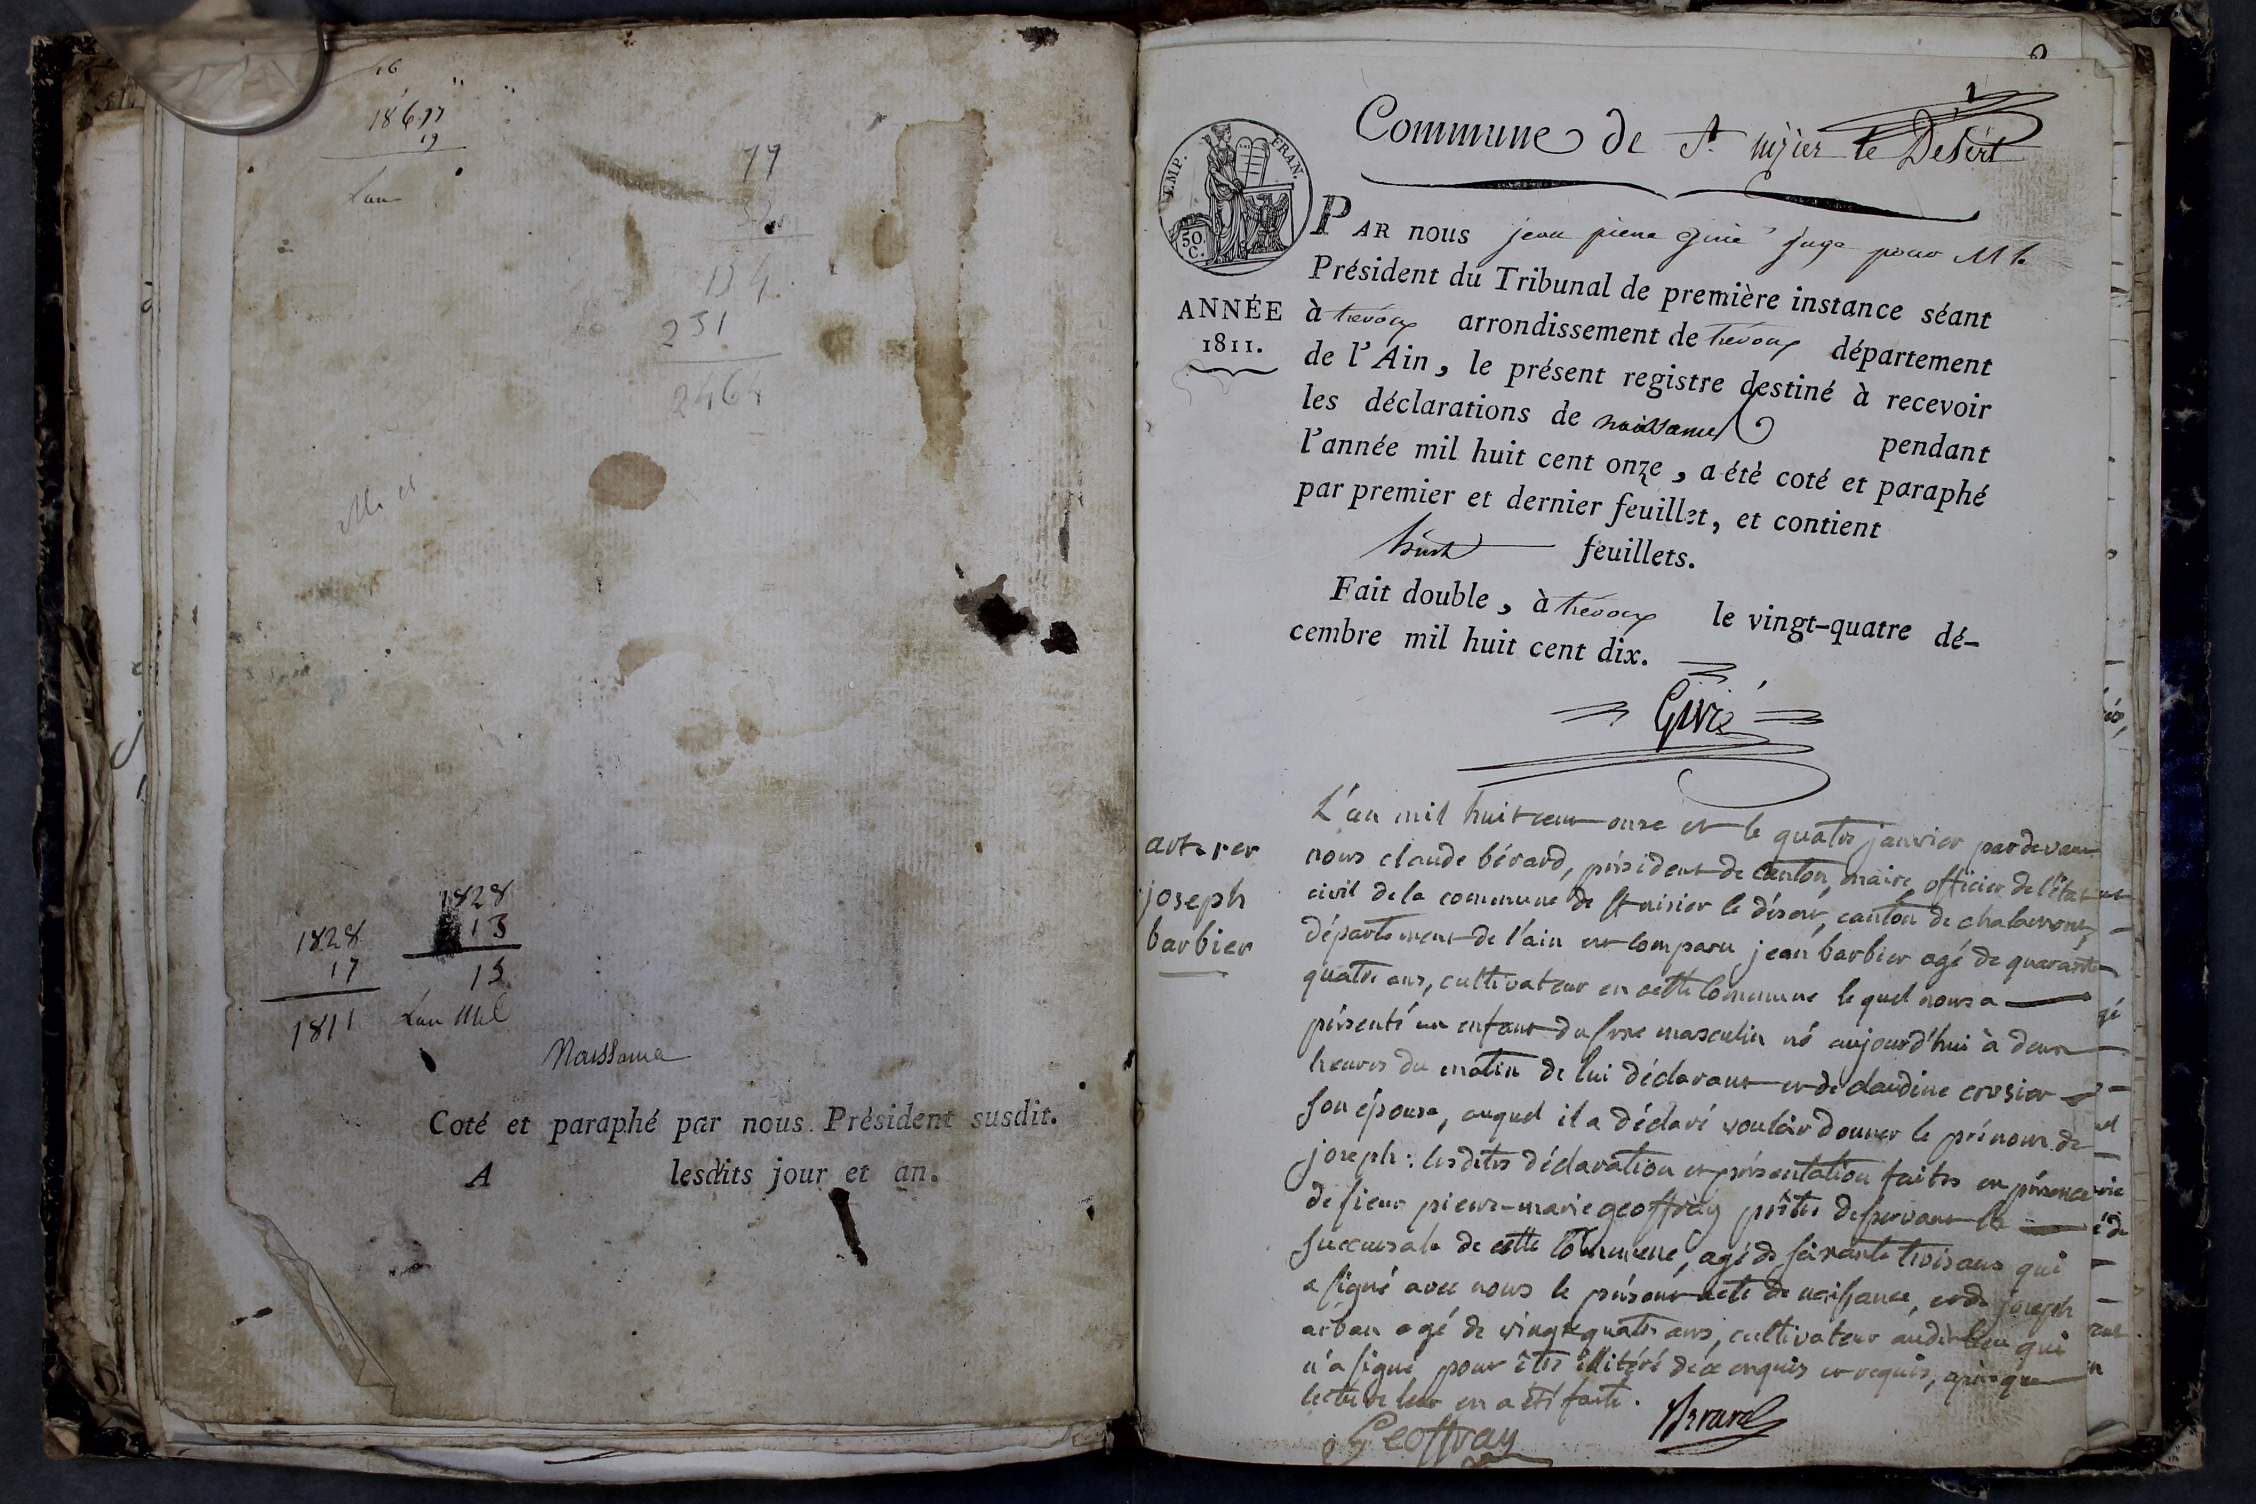 16
1867
19
Lan
77
134
231
2464
1828
13
15
Lan Mil
1828
17
1811
Naissance
Coté et paraphé par nous Président susdit.
A lesdits jour et an.
1
Commune de St nizier le Désert
EMP. FRAN.
50 C.
ANNÉE
1811.
PAR nous jean pierre Givré juge pour M le
Président du Tribunal de première instance séant
à trévoux arrondissement de trévoux département
de l'Ain, le présent registre destiné à recevoir
les déclarations de naissance pendant
l'année mil huit cent onze, a été coté et paraphé
par premier et dernier feuillet, et contient
huit feuillets.
Fait double, à trévoux le vingt-quatre dé-
cembre mil huit cent dix.
Givré
acte 1er
joseph
barbier
L'an mil huit cent onze et le quatre janvier par devant
nous claude bérard, président de canton, maire, officier de l'état
civil de la commune de St nisier le désert, canton de chalamont,
département de l'ain est comparu jean barbier agé de quarante
quatre ans, cultivateur en cette commune lequel nous a
présenté un enfant du sexe masculin né aujourd'hui à deux
heures du matin de lui déclarant et de claudine crosier
son épouse, auquel il a déclaré vouloir donner le prénom de
joseph : lesdites déclaration et présentation faites en présence
de sieur pierre-marie geoffray prêtre desservant la
succursale de cette commune, agé de soixante trois ans qui
a signé avec nous le présent acte de naissance, et de joseph
arban agé de vingt quatre ans, cultivateur audit lieu qui
n'a signé pour être illitéré de ce enquis et requis, après que
lecture leur en a été faite.
Geoffray
Bérard